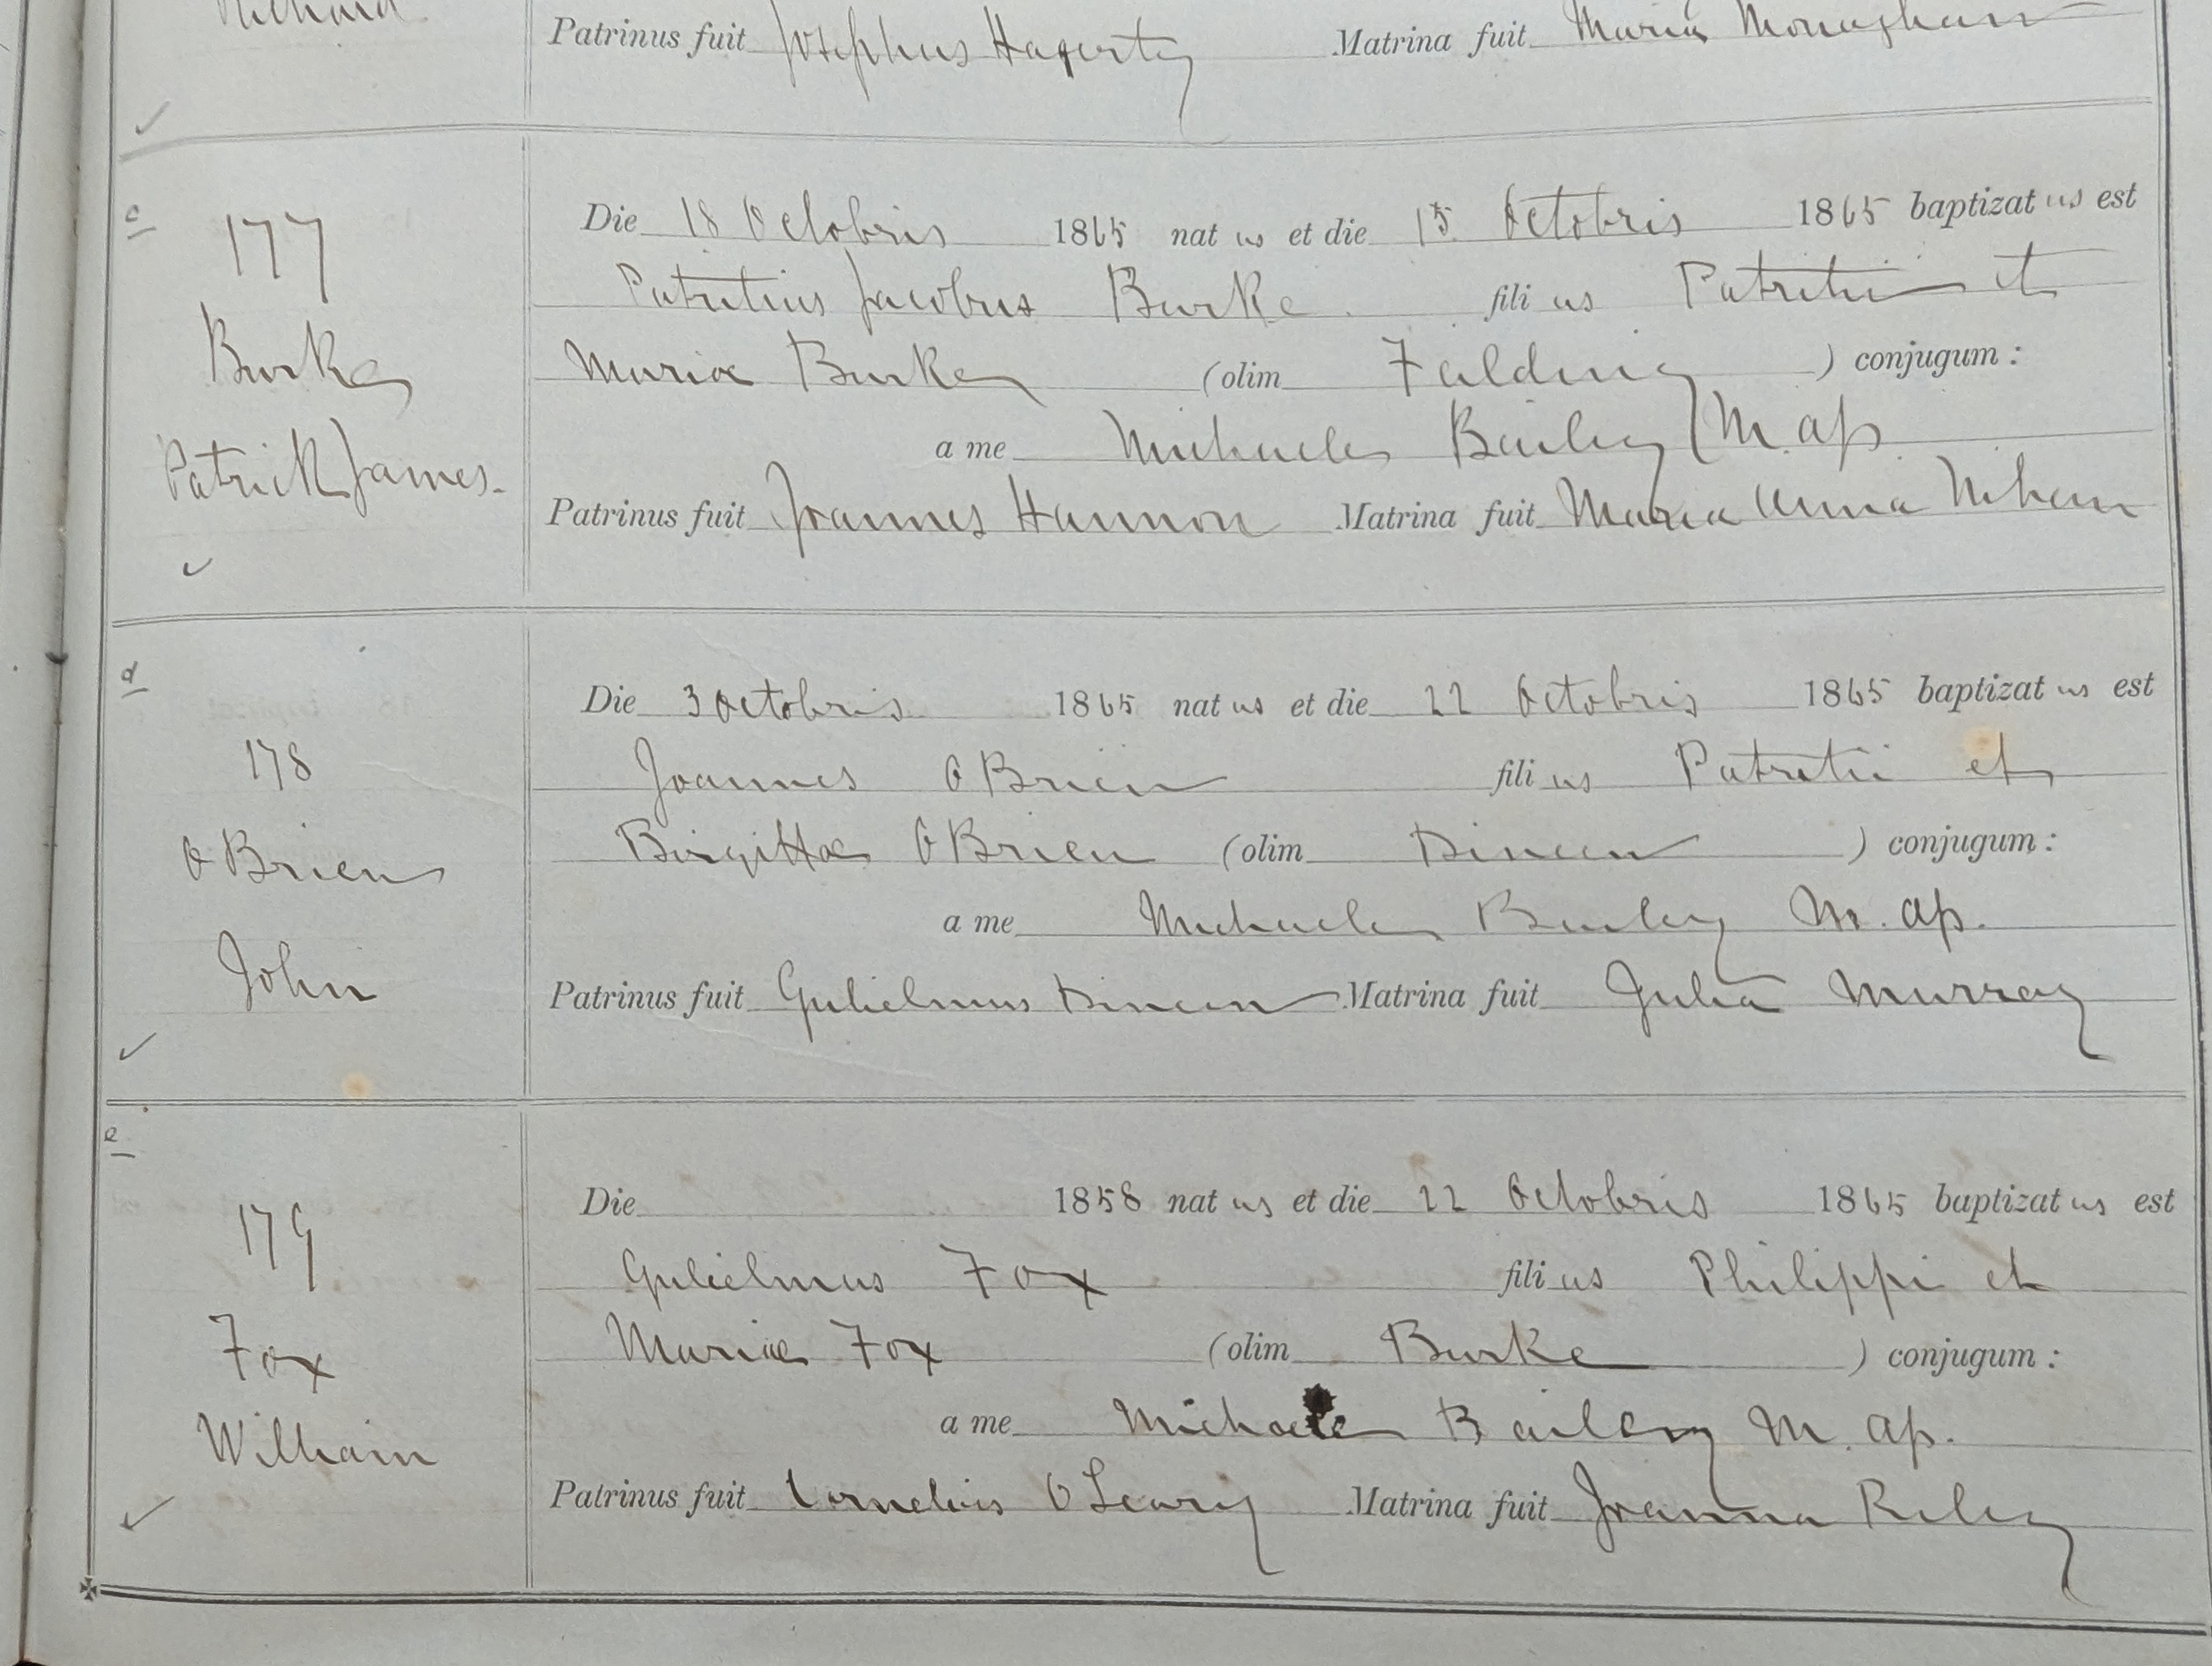 Patrinus fuit Josephus Hagerty Matrina fuit Maria Monaghan
c
177
Burke
Patrick James.
Die 18 Octobris 1865 natus et die 15 Octobris 1865 baptizatus est
Patritius Jacobus Burke filius Patritii et
Mariae Burke (olim Falding ) conjugum :
a me Michaele Bailey M. ap
Patrinus fuit Joannes Hannon Matrina fuit Maria Anna
d
178
O Brien
John
Die 3 Octobris 1865 natus et die 22 Octobris 1865 baptizatus est
Joannes O Brien filius Patritii et
Birgittae O Brien (olim Dineen ) conjugum :
a me Michaele Bailey M. ap.
Patrinus fuit Gulielmus Dineen Matrina fuit Julia Murray
e
179
Fox
William
Die 1858 natus et die 22 Octobris 1865 baptizatus est
Gulielmus Fox filius Philippi et
Mariae Fox (olim Burke ) conjugum :
a me Michaele Bailey M. ap.
Patrinus fuit Cornelius O Leary Matrina fuit Joanna Riley